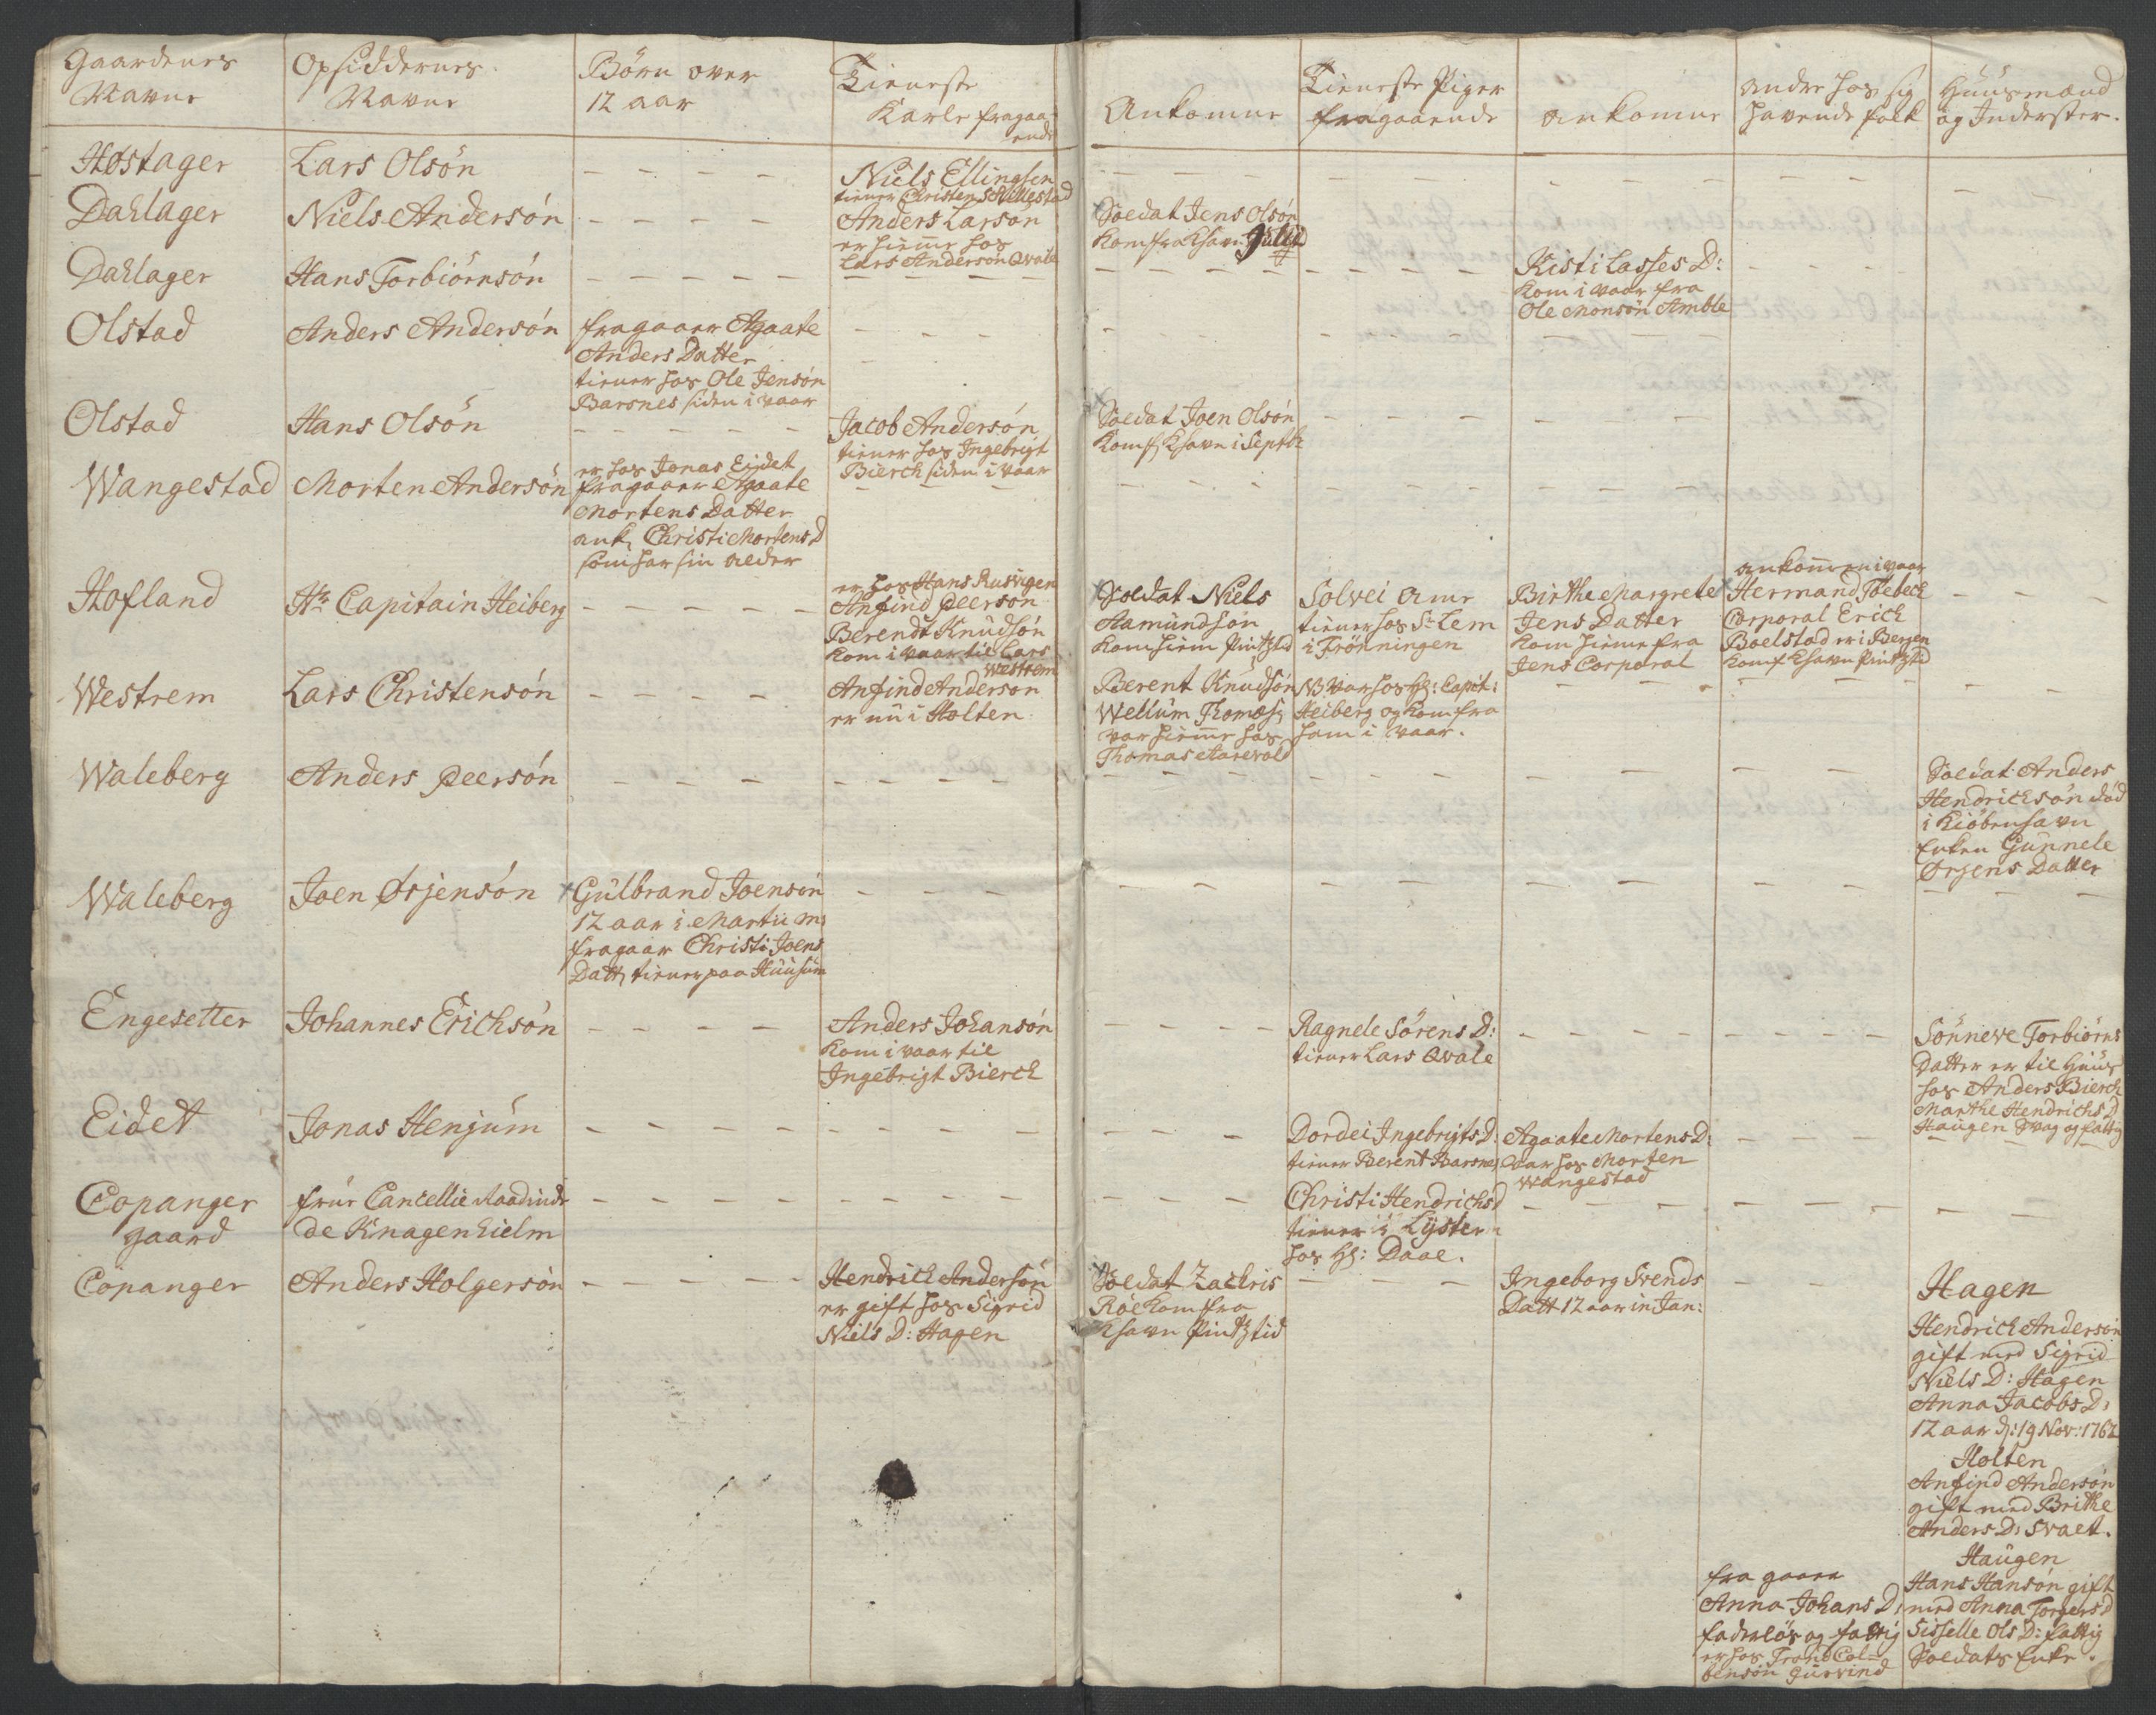 Gaardenes
Navne
Opsiddernes
Navne
Börn over
12 aar
Tieneste
Karle fragaa-
ende
Ankomne
Tieneste Piger
fragaaende
ankomne
andre hos sig
havende folk
Huusmænd
og Inderster.
Høstager
Lars Olsön
Niels Ellingsen
tiener Christen Stillestad
Dahlager
Niels Andersön
Anders Larson
er hieme hos
Lars Anderson Qvale
Soldat Jens Olsön
Kom fra Khavn Juletid
Dahlager
Hans Torbiörnsön
Kisti Lasses D:
kom i vaar fra
Ole Monsön Amble
Olstad
Anders Andersön
fragaaer Agaate
Anders Datter
tiener hos Ole Jensön
Barsnes siden i vaar
Olstad
Hans Olsön
Jacob Andersön
tiener hos Ingebrigt
Bierck siden i vaar
Soldat Joen Olsön
Kom f Khavn i Septbr
Wangestad
Morten Andersön
er hos Jonas Eidet
fragaaer Agaate
Mortens Datter
ank, Christi Mortens D
som har sin alder
Hofland
Hr Capitain Heiberg
er hos Hans Rusvigen
Anfind Peerson
Berendt Knudsön
kom i vaar til Lars
Westrem
Soldat Niels
Aamundsön
kom hiem Pintztid
Solvei Amr
tiener hos Sr Lem
i Frönningen
Birthe Margrete
Jens Datter
kom hieme fra
Jens Corporal
ankommen i vaar
Hermand Töebeck
Corporal Erick
Boelstad er i Bergen
kom f Khavn Pintztid
Westrem
Lars Christensön
Anfind Anderson
er nu i Holten
Berent Knudsön
Wellum Thomæs,
var hieme hos
Thomas Aarevold
NB var hos Hr: Capit:
Heiberg og kom fra
ham i vaar.
Waleberg
Anders Peersón
Soldat Anders
Hendricksön död
i Kiöbenhavn
Enken Gunnele
Ørjens Datter
Waleberg
Joen Ørjensón
Gulbrand Joensön
12 aar i Martii m:
fragaar Christi Joens
Datt, tiener paa Huusum
Engesetter
Johannes Erichsón
Anders Johansón
kom i vaar til
Ingebrigt Bierck
Ragnele Sörens D:
tiener Lars Qvale
Sönneve Torbiörns
Datter er til Huus
hos Anders Bierck
Marthe Hendrichs D
Haugen svag og fattig
Eidet
Jonas Henjum
Dordei Ingebrigts D:
tiener Berent Barsnes
Agaate Mortens D:
var hos Morten
Wangestad
Copanger
gaard
frue Cancellie Raadinde
de Knagenhielm
Christi Hendrichs D
tiener i Lyster
hos Hr: Daae.
Copanger
Anders Holgersön
Hendrich Andersön
er gift hos Sigrid
Niels D: Hagen
Soldat Zachris
Röe kom fra
Khavn Pintztid
Ingeborg Svends
Datt 12 aar in Jan:
Hagen
Hendrich Andersön
gift med Sigrid
Niels D: Hagen
Anna Jacobs D:
12 aar d: 19 Nov: 1762
Holten
Anfind Anderson
gift med Brithe
Anders D: Svaet.
Haugen
Hans Hansön gift
med Anna Torgers D
Sisselle Ols D: fattig
Soldats Enke.
fra gaaer
Anna Johans D:
faderløs og fattig
er hos Trond Col-
bensön Gurvind